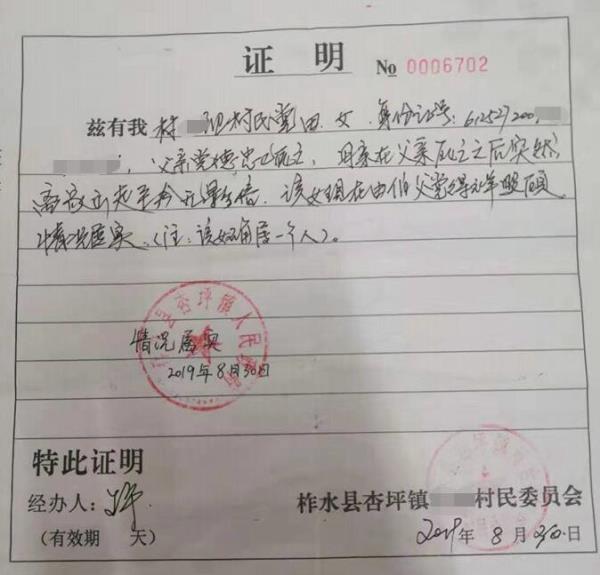 证 明 No 0006702
兹有我 村 组村民党田,女,身份证号:612527200
,父亲党德忠已死亡,母亲在父亲死亡之后突然
离家出走至今无影信。该女现在由伯父党得照顾
情况属实。(注:该女孤居一个人)。
县杏坪镇人民政府
情况属实
2019年8月30日
特此证明
经办人:
(有效期 天)
柞水县杏坪镇 村民委员会
2019年 8月 30日